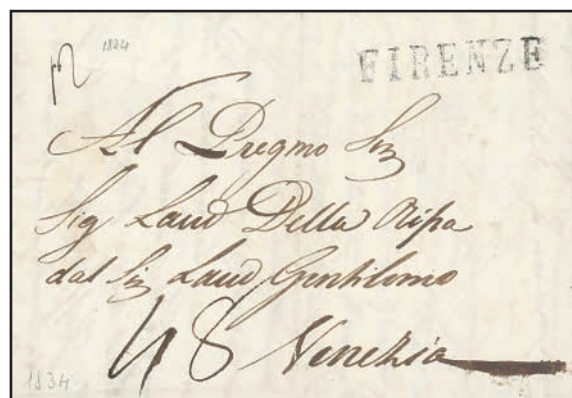 1834
FIRENZE
Al Pregmo Sig
Sig Laud Della Ripa
dal Sig Laud Gentilomo
48 Venezia
1834